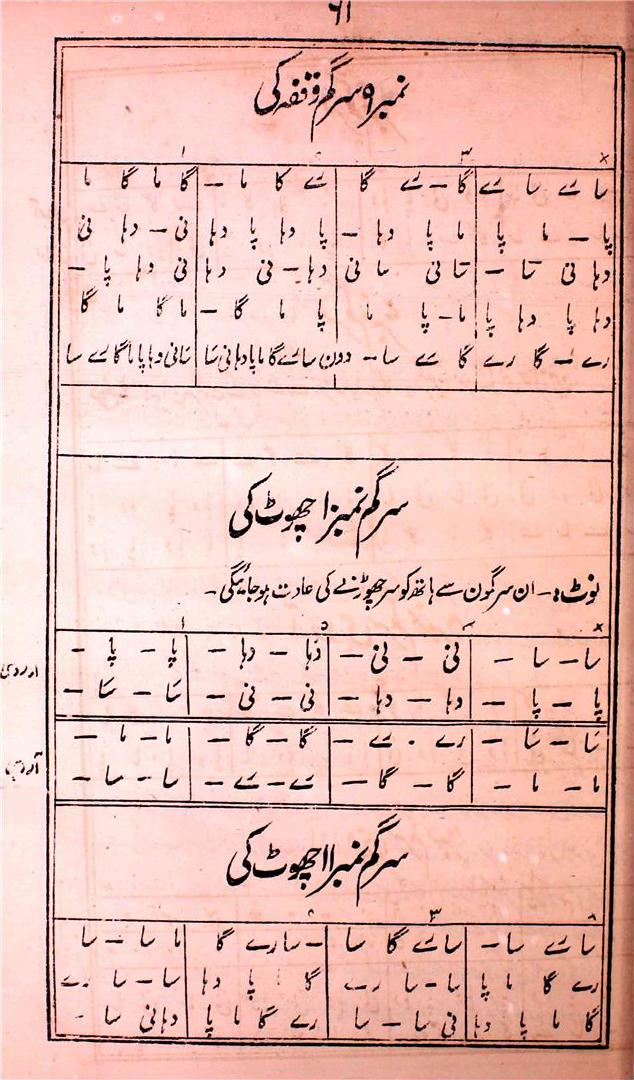 ۶۱
نمبر ۹ سرگم وقفہ کی
× ۳ ۰ ۱
سا رے سا رے گا – رے گا رے گا ما – گا ما گا ما
پا – ما پا ما پا دہا – پا دہا پا دہا نی – دہا نی
دہا نی سا – سا نی سا نی دہا – نی دہا نی دہا پا –
دہا پا دہا پا ما – پا ما پا ما گا – ما گا ما گا
رے – گا رے گا رے سا – دون سارے گا ما پا دہا نی سا سا نی دہا پا ما گا رے سا
سرگم نمبر ۱۰ چھوٹ کی
نوٹ :- ان سرگمون سے ہاتھ کو سر چھوڑنے کی عادت ہو جائیگی –
×
سا – سا – نی – نی – دہا – دہا – پا – پا –
پا – پا – دہا – دہا – نی – نی – سا – سا –
سا – سا – رے – رے – گا – گا – ما – ما –
ما – ما – گا – گا – رے – رے – سا – سا –
سرگم نمبر ۱۱ چھوٹ کی
۳
سا رے سا – سا رے گا سا – سا رے گا ما سا – سا
رے گا ما پا سا – سا رے گا ما پا دہا سا – سا رے
گا ما پا دہا نی سا – سا رے گا ما پا دہا نی سا –